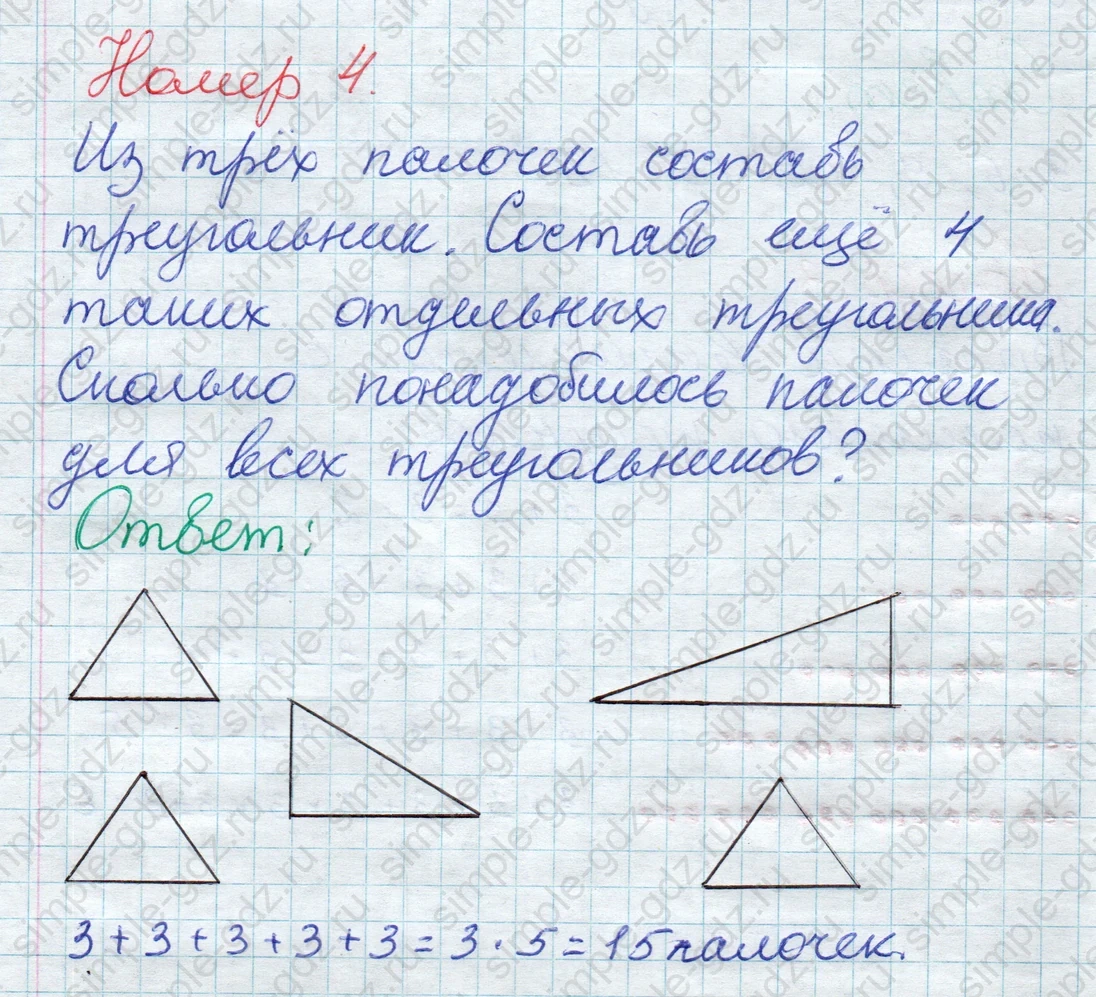 Номер 4.
Из трёх палочек составь
треугольник. Составь ещё 4
таких отдельных треугольника.
Сколько понадобилось палочек
для всех треугольников?
Ответ:
3 + 3 + 3 + 3 + 3 = 3 · 5 = 15 палочек.
simple-gdz.ru